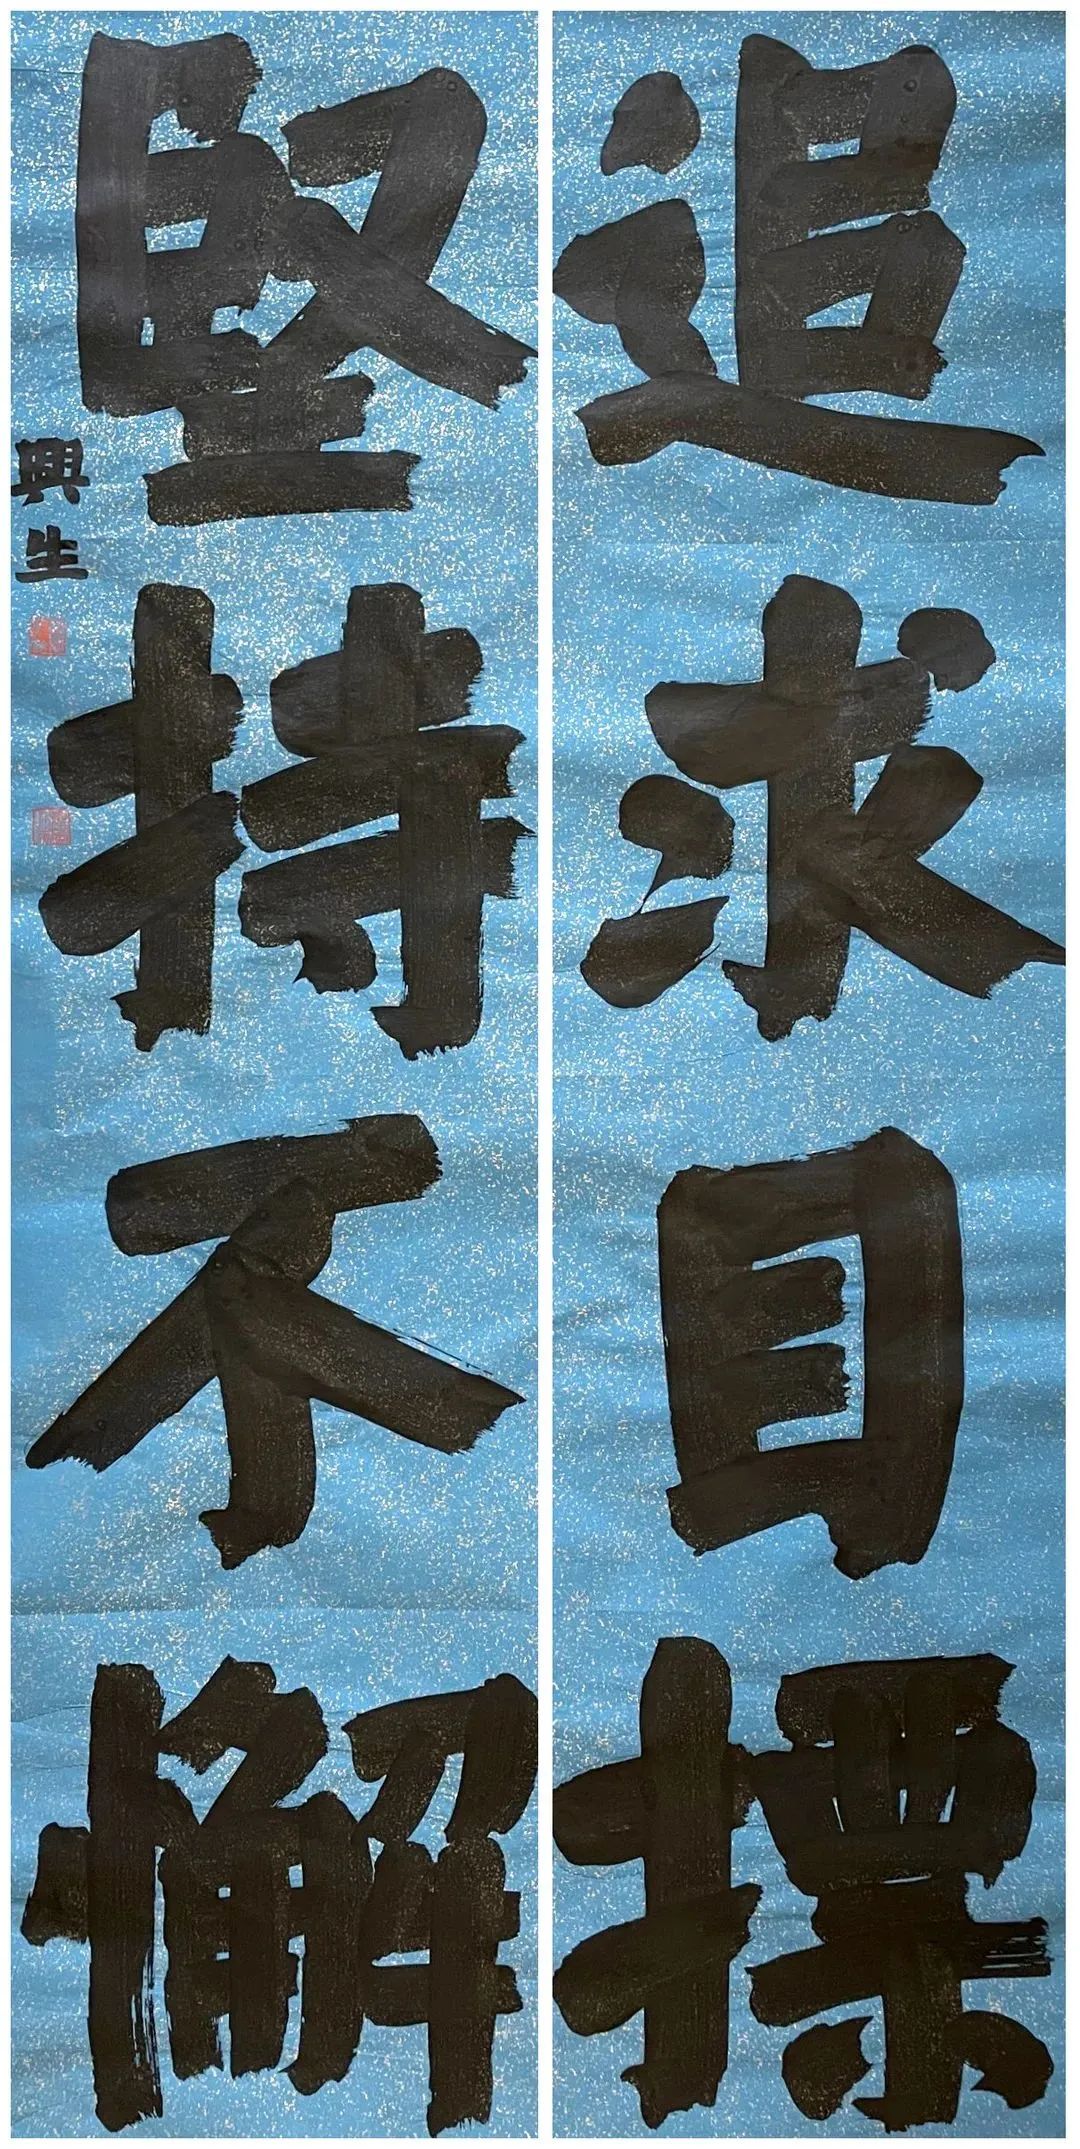 追求目摽
堅持不懈
興生